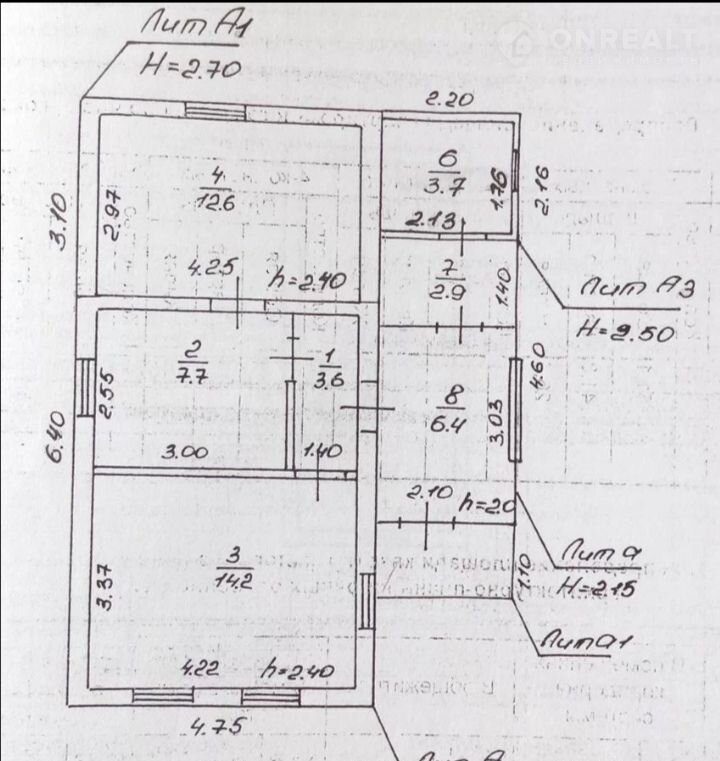 Лит А1
H=2.70
ONREALT
2.20
6
3.7
1.76
2.16
4
12.6
2.97
3.10
2.13
4.25
h=2.40
7
2.9
1.40
Лит А3
H=2.50
2
7.7
1
3.6
2.55
8
6.4
3.03
4.60
6.40
3.00
1.40
2.10
h=2.0
Лит а
H=2.15
3
14.2
3.37
1.10
Лит а1
4.22
h=2.40
4.75
Лит А